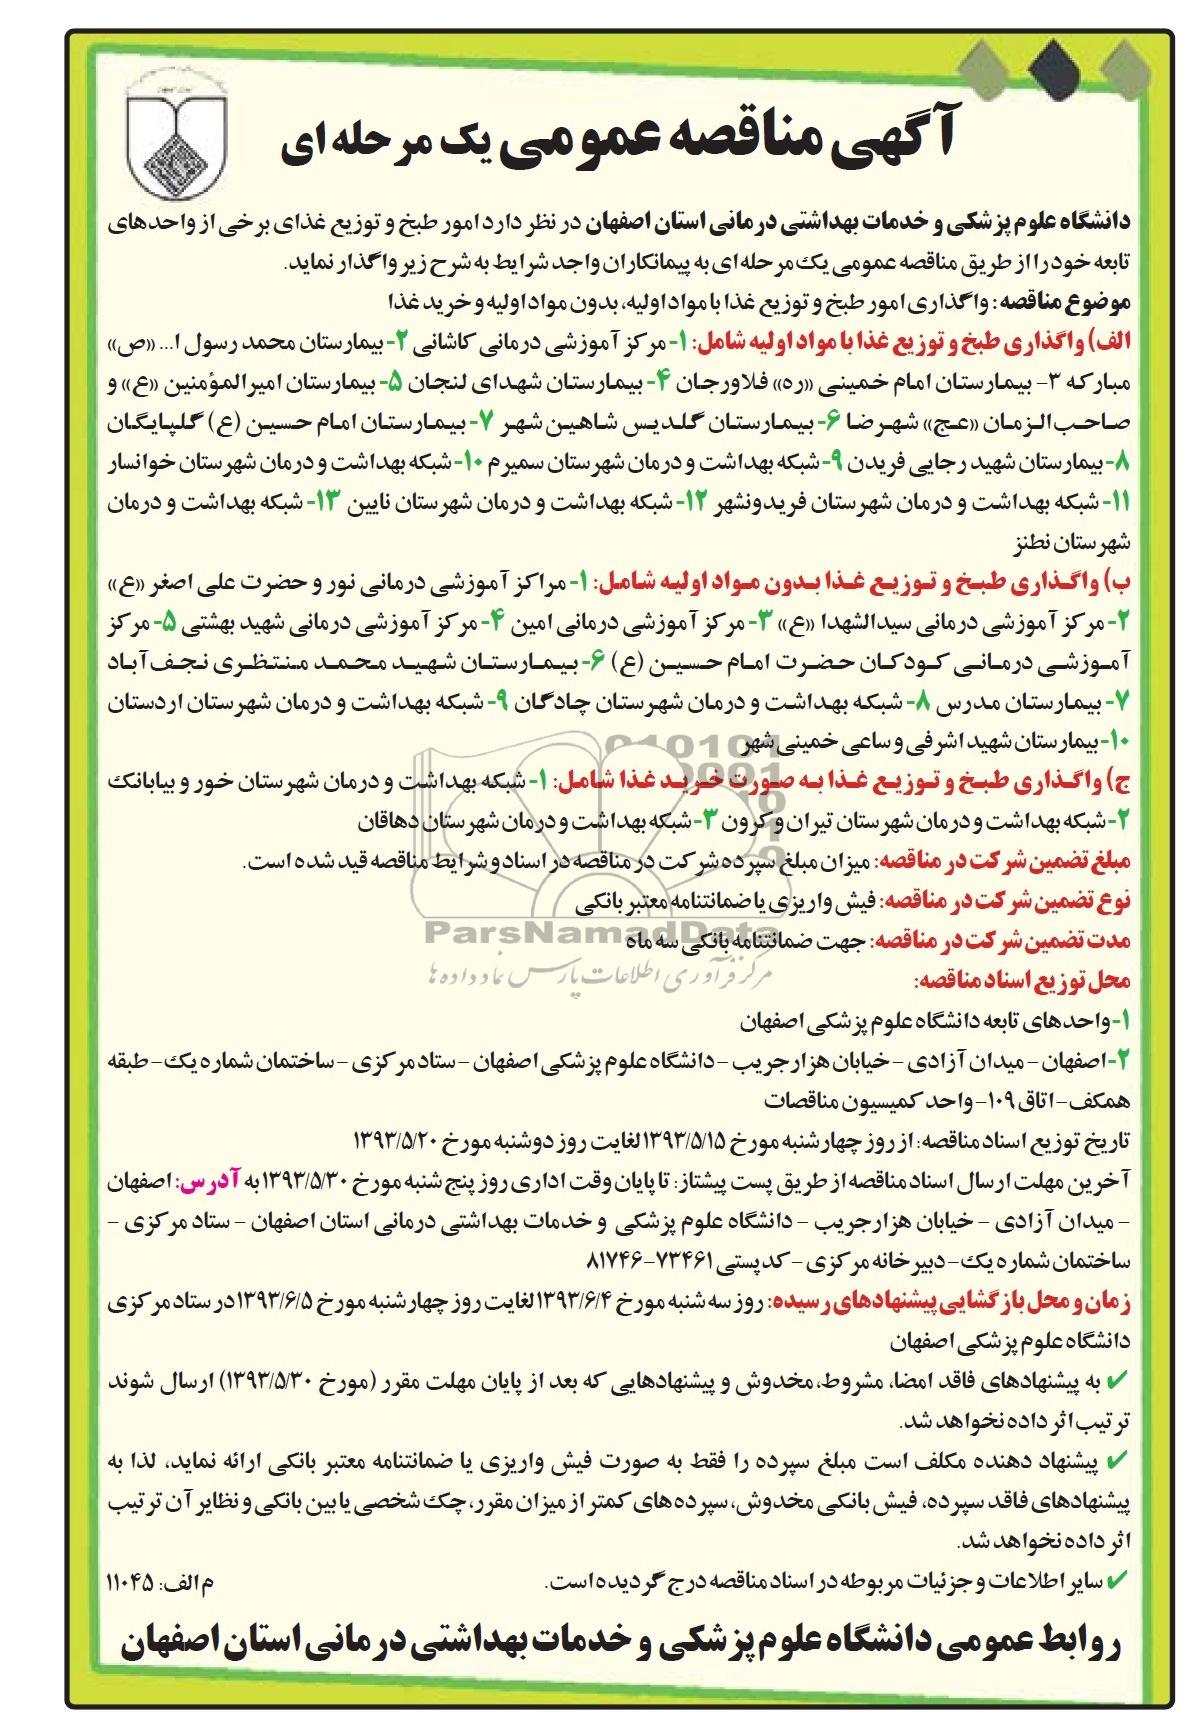 آگهی مناقصه عمومی یک مرحله ای
دانشگاه علوم پزشکی و خدمات بهداشتی درمانی استان اصفهان در نظر دارد امور طبخ و توزیع غذای برخی از واحدهای
تابعه خود را از طریق مناقصه عمومی یک مرحله ای به پیمانکاران واجد شرایط به شرح زیر واگذار نماید.
موضوع مناقصه: واگذاری امور طبخ و توزیع غذا با مواد اولیه، بدون مواد اولیه و خرید غذا
الف) واگذاری طبخ و توزیع غذا با مواد اولیه شامل: ۱- مرکز آموزشی درمانی کاشانی ۲- بیمارستان محمد رسول ا... «ص»
مبارکه ۳- بیمارستان امام خمینی «ره» فلاورجان ۴- بیمارستان شهدای لنجان ۵- بیمارستان امیرالمؤمنین «ع» و
صاحب الزمان «عج» شهرضا ۶- بیمارستان گلدیس شاهین شهر ۷- بیمارستان امام حسین (ع) گلپایگان
۸- بیمارستان شهید رجایی فریدن ۹- شبکه بهداشت و درمان شهرستان سمیرم ۱۰- شبکه بهداشت و درمان شهرستان خوانسار
۱۱- شبکه بهداشت و درمان شهرستان فریدونشهر ۱۲- شبکه بهداشت و درمان شهرستان نایین ۱۳- شبکه بهداشت و درمان
شهرستان نطنز
ب) واگذاری طبخ و توزیع غذا بدون مواد اولیه شامل: ۱- مراکز آموزشی درمانی نور و حضرت علی اصغر «ع»
۲- مرکز آموزشی درمانی سیدالشهدا «ع» ۳- مرکز آموزشی درمانی امین ۴- مرکز آموزشی درمانی شهید بهشتی ۵- مرکز
آموزشی درمانی کودکان حضرت امام حسین (ع) ۶- بیمارستان شهید محمد منتظری نجف آباد
۷- بیمارستان مدرس ۸- شبکه بهداشت و درمان شهرستان چادگان ۹- شبکه بهداشت و درمان شهرستان اردستان
۱۰- بیمارستان شهید اشرفی و ساعی خمینی شهر
ج) واگذاری طبخ و توزیع غذا به صورت خرید غذا شامل: ۱- شبکه بهداشت و درمان شهرستان خور و بیابانک
۲- شبکه بهداشت و درمان شهرستان تیران و کرون ۳- شبکه بهداشت و درمان شهرستان دهاقان
مبلغ تضمین شرکت در مناقصه: میزان مبلغ سپرده شرکت در مناقصه در اسناد و شرایط مناقصه قید شده است.
نوع تضمین شرکت در مناقصه: فیش واریزی یا ضمانتنامه معتبر بانکی
ParsNamadData
مدت تضمین شرکت در مناقصه: جهت ضمانتنامه بانکی سه ماه
مرکز فرآوری اطلاعات پارس نماد داده ها
محل توزیع اسناد مناقصه:
۱- واحدهای تابعه دانشگاه علوم پزشکی اصفهان
۲- اصفهان - میدان آزادی - خیابان هزارجریب - دانشگاه علوم پزشکی اصفهان - ستاد مرکزی - ساختمان شماره یک - طبقه
همکف - اتاق ۱۰۹ - واحد کمیسیون مناقصات
تاریخ توزیع اسناد مناقصه: از روز چهارشنبه مورخ ۱۳۹۳/۵/۱۵ لغایت روز دوشنبه مورخ ۱۳۹۳/۵/۲۰
آخرین مهلت ارسال اسناد مناقصه از طریق پست پیشتاز: تا پایان وقت اداری روز پنج شنبه مورخ ۱۳۹۳/۵/۳۰ به آدرس: اصفهان
- میدان آزادی - خیابان هزارجریب - دانشگاه علوم پزشکی و خدمات بهداشتی درمانی استان اصفهان - ستاد مرکزی -
ساختمان شماره یک - دبیرخانه مرکزی - کد پستی ۷۳۴۶۱-۸۱۷۴۶
زمان و محل بازگشایی پیشنهادهای رسیده: روز سه شنبه مورخ ۱۳۹۳/۶/۴ لغایت روز چهارشنبه مورخ ۱۳۹۳/۶/۵ در ستاد مرکزی
دانشگاه علوم پزشکی اصفهان
✔ به پیشنهادهای فاقد امضا، مشروط، مخدوش و پیشنهادهایی که بعد از پایان مهلت مقرر (مورخ ۱۳۹۳/۵/۳۰) ارسال شوند
ترتیب اثر داده نخواهد شد.
✔ پیشنهاد دهنده مکلف است مبلغ سپرده را فقط به صورت فیش واریزی یا ضمانتنامه معتبر بانکی ارائه نماید، لذا به
پیشنهادهای فاقد سپرده، فیش بانکی مخدوش، سپرده های کمتر از میزان مقرر، چک شخصی یا بین بانکی و نظایر آن ترتیب
اثر داده نخواهد شد.
✔ سایر اطلاعات و جزئیات مربوطه در اسناد مناقصه درج گردیده است. م الف: ۱۱۰۴۵
روابط عمومی دانشگاه علوم پزشکی و خدمات بهداشتی درمانی استان اصفهان